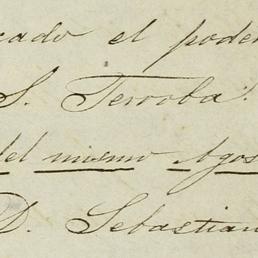 cado el poder
S. Terroba.
del mismo Agos
D. Sebastian